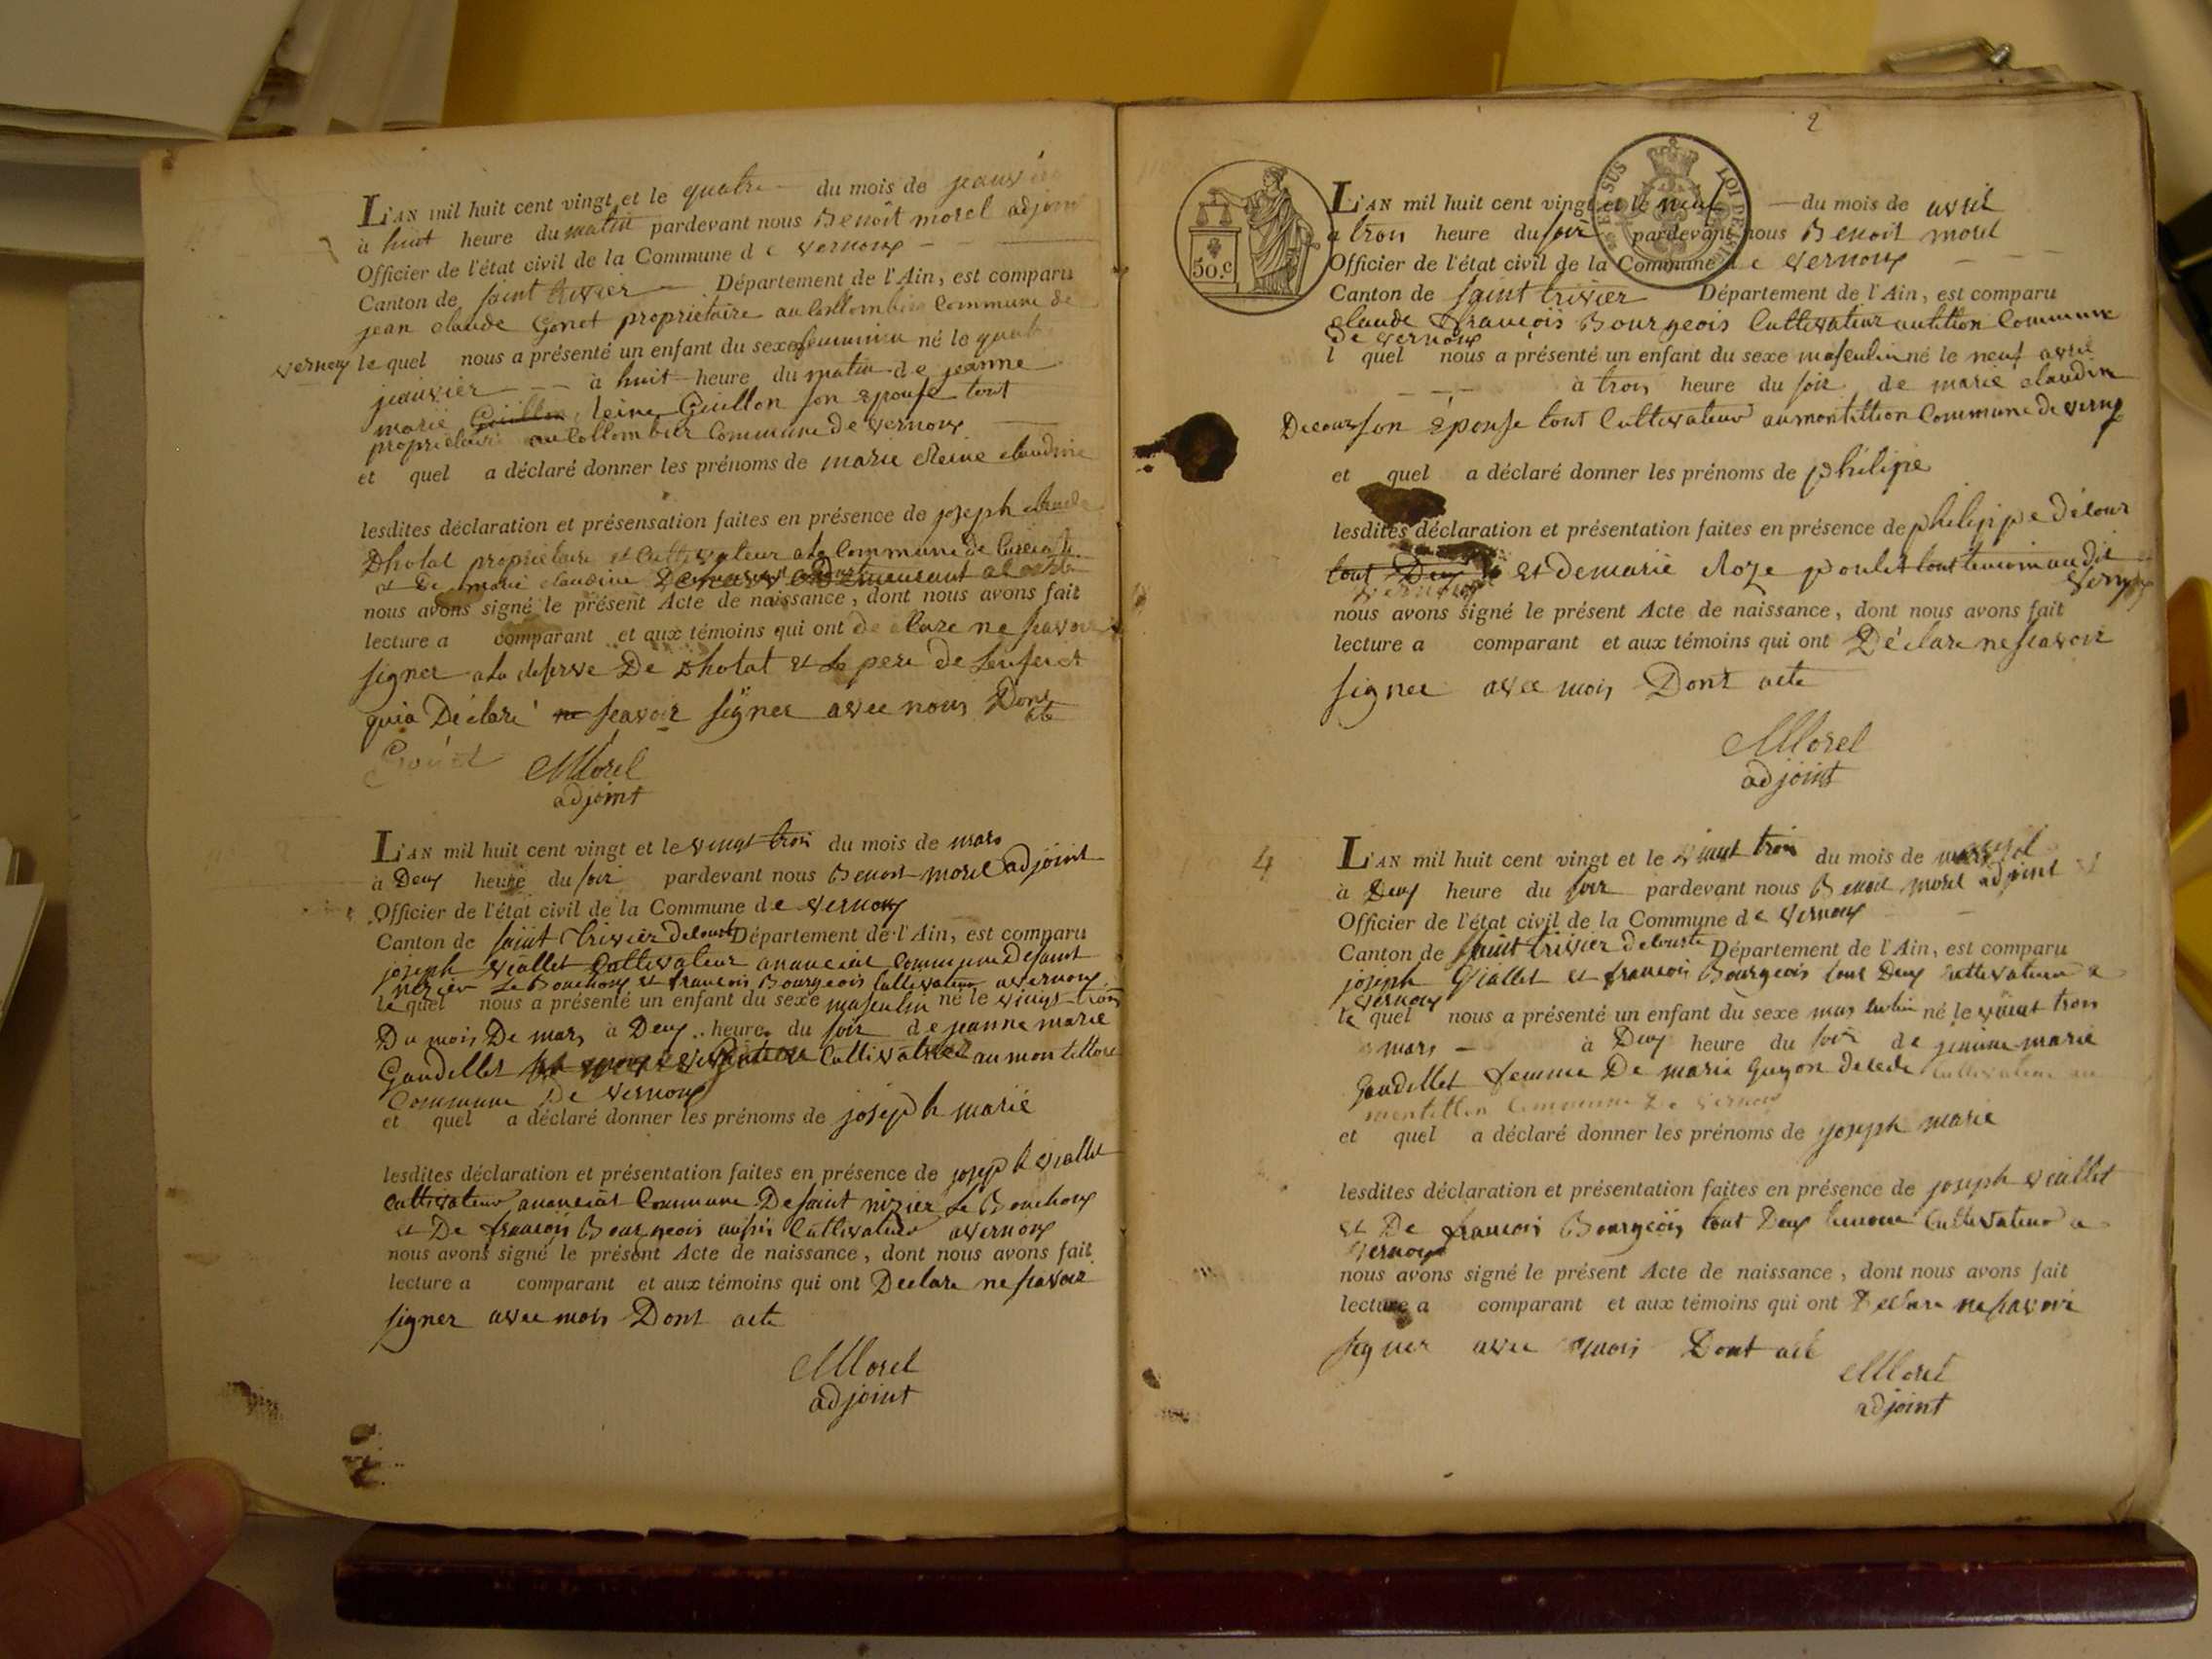 L'AN mil huit cent vingt et le quatre du mois de
à huit heure du matin pardevant nous Benoit morel adjoint
Officier de l'état civil de la Commune de vernoux
Canton de saint trivier Département de l'Ain, est comparu
jean claude Gonet proprietaire au Commune de
vernoux lequel nous a présenté un enfant du sexe feminin né le
jeanvier à huit heure du matin de jeanne
marie Guillon son epouse tout
proprietaire au Collombier Commune de vernoux
et quel a déclaré donner les prénoms de marie Reine claudine
lesdites déclaration et présensation faites en présence de joseph
Dhotal proprietaire et Cultivateur a la Commune de
et De marie claudine
nous avons signé le présent Acte de naissance, dont nous avons fait
lecture a comparant et aux témoins qui ont declare ne scavoir
signer a la reserve De Dhotal et Le pere de
qui a Déclaré ne scavoir signer avec nous Dont
acte
Gonet Morel
adjoint
L'AN mil huit cent vingt et le vingt trois du mois de mars
à Deux heure du soir pardevant nous Benoit morel adjoint
Officier de l'état civil de la Commune de vernoux
Canton de saint trivier decourte Département de l'Ain, est comparu
joseph viallet Cultivateur commune Desaint
nizier Le Bouchoux et francois Bourgeois Cultivateur a vernoux
le quel nous a présenté un enfant du sexe masculin né le vingt trois
Du mois De mars à Deux heure du soir de jeanne marie
Gaudillet au montillion
Commune De vernoux
et quel a déclaré donner les prénoms de joseph marie
lesdites déclaration et présentation faites en présence de joseph viallet
Cultivateur Commune De saint nizier Le Bouchoux
et De francois Bourgeois aussi Cultivateur a vernoux
nous avons signé le présent Acte de naissance, dont nous avons fait
lecture a comparant et aux témoins qui ont Declare ne scavoir
signer avec mois Dont acte
Morel
adjoint
2
SUS LOI DE
50.c
L'AN mil huit cent vingt et le neuf du mois de avril
à trois heure du soir pardevant nous Benoit morel
Officier de l'état civil de la Commune de vernoux
Canton de saint trivier Département de l'Ain, est comparu
claude francois Bourgeois Cultivateur Commune
de vernoux
l quel nous a présenté un enfant du sexe masculin né le neuf avril
à trois heure du soir de marie claudine
Decour son épouse tout Cultivateur au montillion Commune de vernoux
et quel a déclaré donner les prénoms de philipe
lesdites déclaration et présentation faites en présence de philippe décour
tout Deux et de marie Roze poulet tout temoin audit
vernoux
nous avons signé le présent Acte de naissance, dont nous avons fait
lecture a comparant et aux témoins qui ont Déclare ne scavoir
signer avec mois Dont acte
Morel
adjoint
4
L'AN mil huit cent vingt et le vingt trois du mois de
à Deux heure du soir pardevant nous Benoit morel adjoint
Officier de l'état civil de la Commune de vernoux
Canton de saint trivier decourte Département de l'Ain, est comparu
joseph Viallet et francois Bourgeois tous Deux cultivateur a
vernoux
le quel nous a présenté un enfant du sexe masculin né le vingt trois
mars à Deux heure du soir de jeanne marie
Gaudillet femme De marie Guyon decede Cultivateur au
montillion Commune De vernoux
et quel a déclaré donner les prénoms de joseph marie
lesdites déclaration et présentation faites en présence de joseph viallet
et De francois Bourgeois tout Deux temoin Cultivateur a
vernoux
nous avons signé le présent Acte de naissance, dont nous avons fait
lecture a comparant et aux témoins qui ont Declare ne scavoir
signer avec mois Dont acte
Morel
adjoint